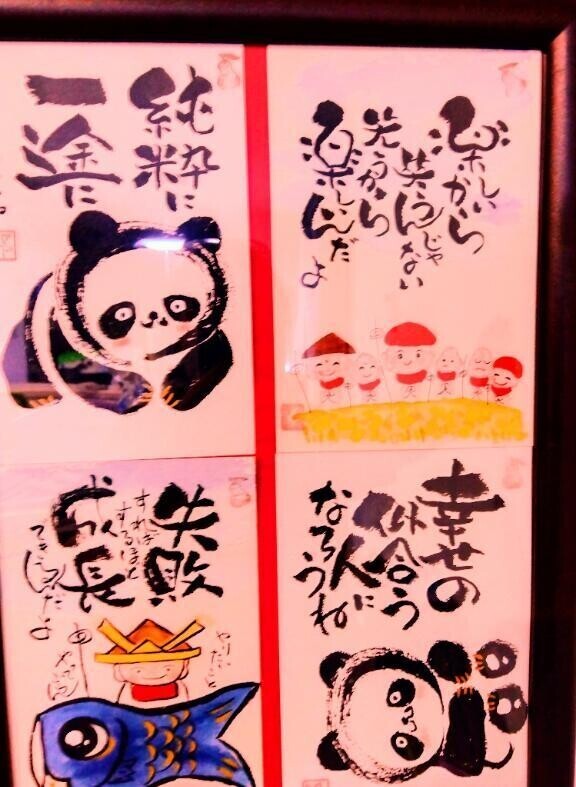 楽しいから
笑うんじゃない
笑うから
楽しいんだよ
純粋に
一途に
幸せの
似合う
人に
なろうね
失敗
すればするほど
成長
できるんだよ